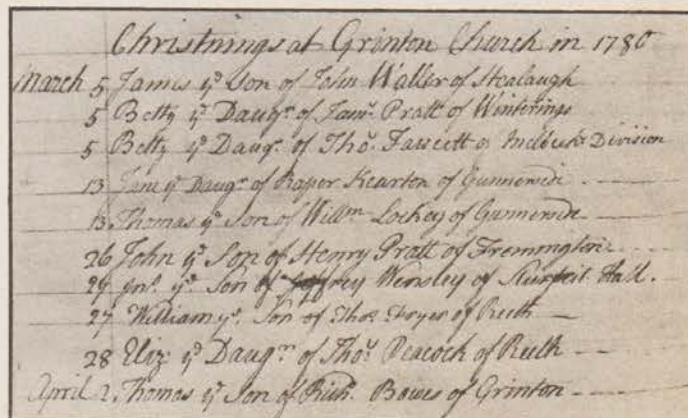 Christnings at Grinton Church in 1780
March 5 James yᵉ Son of John Waller of Healaugh
5 Betty yᵉ Daugʳ of Jamˢ Pratt of Winterings
5 Betty yᵉ Daugʳ of Thoˢ Fawcett of Melbeckˢ Division
13 Jane yᵉ Daugʳ of Raper Kearton of Gunnerside
13 Thomas yᵉ Son of Willᵐ Lockey of Gunnerside
26 John yᵉ Son of Henry Pratt of Fremington
27 Jnᵒ yᵉ Son of Wensley of Hall.
27 William yᵉ Son of Thoˢ Fryer of Reeth
28 Eliz yᵉ Daugʳ of Thoˢ Peacock of Reeth
April 2 Thomas yᵉ Son of Richᵈ Bowes of Grinton